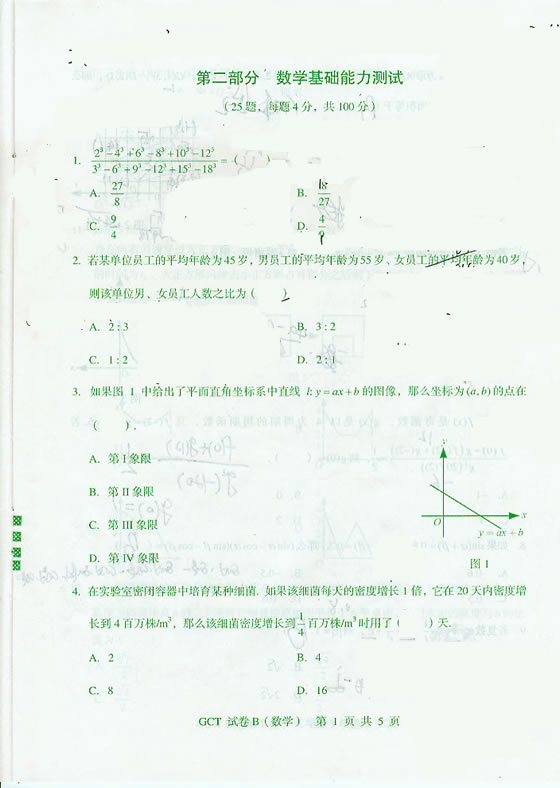 第二部分 数学基础能力测试
（25题，每题4分，共100分）
1. (2³−4³+6³−8³+10³−12³)/(3³−6³+9³−12³+15³−18³)=（ ）
A. 27/8 B. 18/27
C. 9/4 D. 4/9
2. 若某单位员工的平均年龄为45岁，男员工的平均年龄为55岁、女员工的平均年龄为40岁，
则该单位男、女员工人数之比为（ ）
A. 2:3 B. 3:2
C. 1:2 D. 2:1
3. 如果图 1 中给出了平面直角坐标系中直线 l: y=ax+b 的图像，那么坐标为(a,b)的点在
（ ）.
A. 第 I 象限
B. 第 II 象限
C. 第 III 象限
D. 第 IV 象限
y
O
x
y=ax+b
图 1
4. 在实验室密闭容器中培育某种细菌. 如果该细菌每天的密度增长 1 倍，它在 20 天内密度增
长到 4 百万株/m³，那么该细菌密度增长到 1/4 百万株/m³ 时用了（ ）天.
A. 2 B. 4
C. 8 D. 16
GCT 试卷 B（数学） 第 1 页 共 5 页